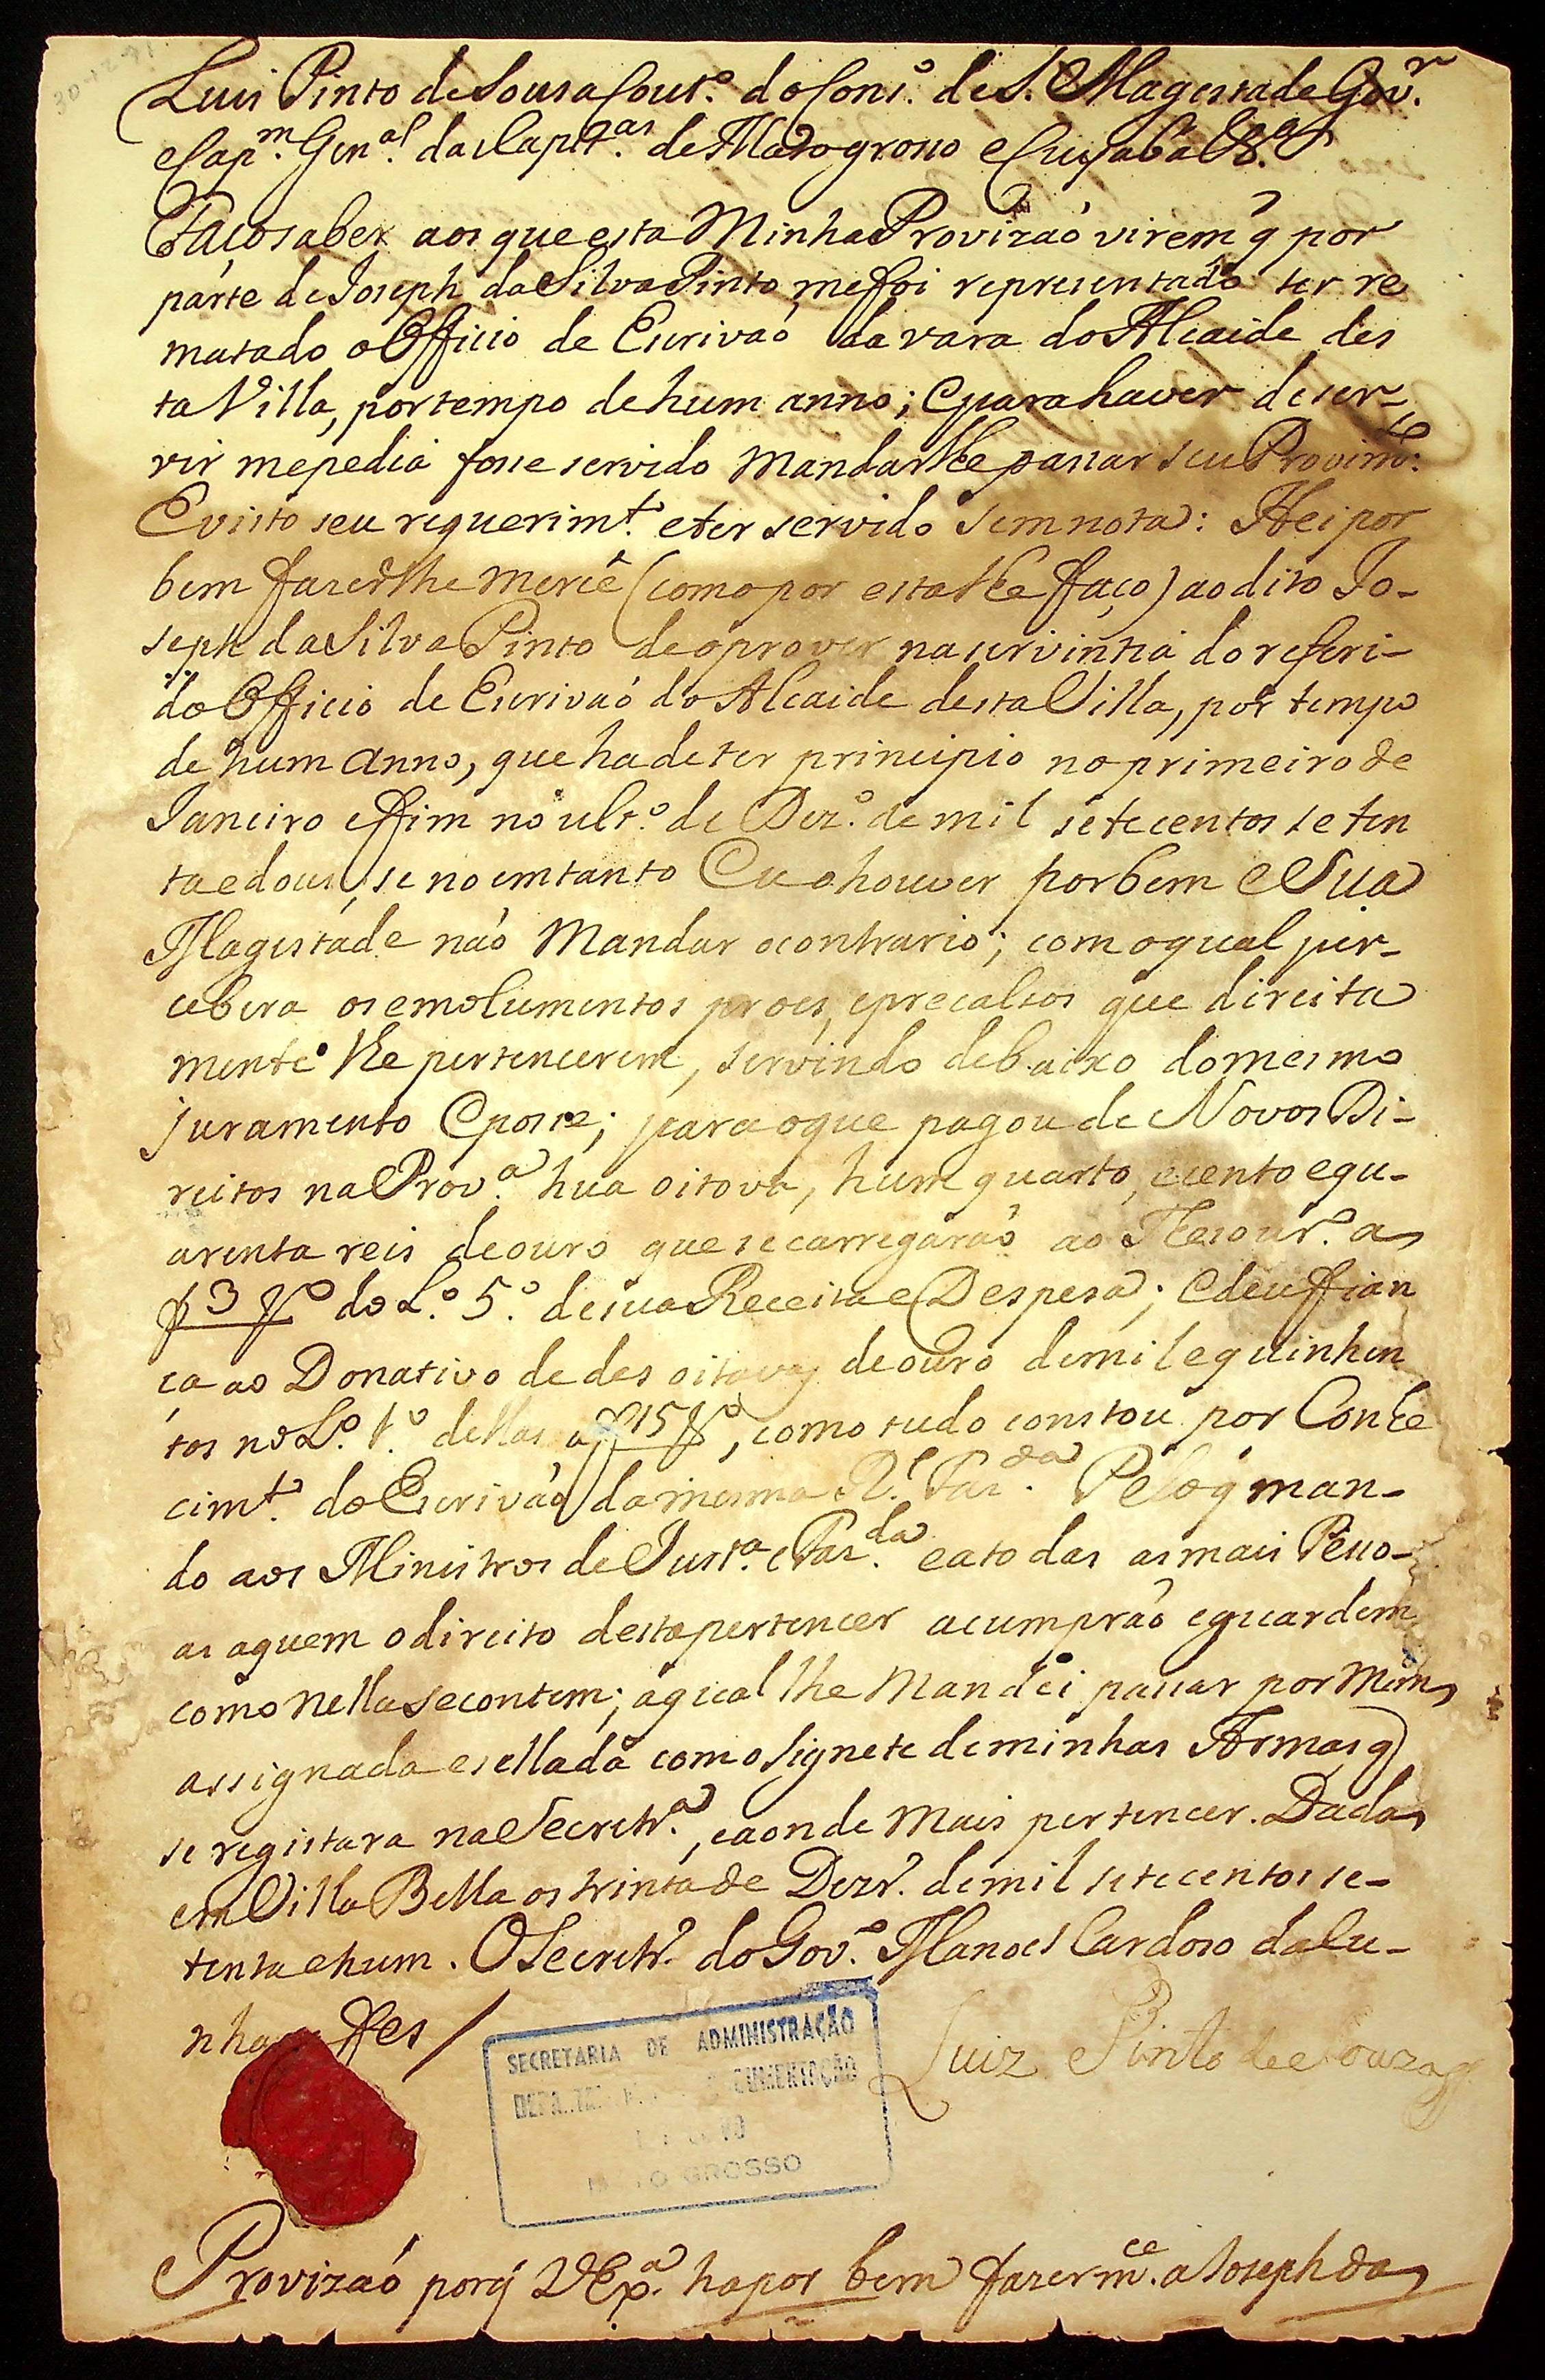 30-12-71
Luis Pinto de Sousa Cout.º do Cons.º de S. Magestade Gov.ʳ
e Cap.ᵐ Gen.ᵃˡ das Capit.ᵃˢ de Matogrosso e Cuyabá &.ᵃ
Faço saber aos que esta Minha Provizaõ virem q̃ por
parte de Joseph da Silva Pinto me foi representado ter re
matado o Officio de Escrivaõ da vara do Alcaide des
ta Villa, por tempo de hum anno; e para haver de ser-
vir me pedia fosse servido Mandarlhe passar seu Provim.ᵗᵒ:
E visto seu requerim.ᵗᵒ e ter servido sem nota: Hei por
bem fazerlhe mercê (como por esta lhe faço) ao dito Jo-
seph da Silva Pinto de o prover na servintia do referi-
do Officio de Escrivaõ do Alcaide desta Villa, por tempo
de hum anno, que ha de ter principio no primeiro de
Janeiro e fim no ult.º de Dez.º de mil setecentos seten
ta e dous, se no emtanto Eu o houver por bem e Sua
Magestade naõ Mandar o contrario; com o qual per-
cebera os emolumentos proes, e precalsos que direita
mente lhe pertencerem, servindo debaixo do mesmo
juramento e posse; para o que pagou de Novos Di-
reitos na Prov.ᵃ hua oitova, hum quarto, e cento e qu-
arenta reis de ouro que se carregáraõ ao Thesour.º a
f 3 vº do L.º 5.º de sua Receita e Despesa; e deu fian
ca ao Donativo de des oitavas de ouro de mil e quinhen
tos no L.º 1.º dellas a f 15 vº, como tudo constou por Conhe
cim.ᵗᵒ do Escrivaõ da mesma R.ˡ Faz.ᵈᵃ Pelo q̃ man-
do aos Ministros de Just.ᵃ e Faz.ᵈᵃ e a todas as mais Pesso-
as aquem o direito desta pertencer a cumpraõ e guardem
como nella se contem; a qual lhe Mandei passar por Mim
assignada e sellada com o Signete de minhas Armas q̃
se registara na Secretr.ᵃ, e aonde mais pertencer. Dada
em Villa Bella os trinta de Dezr.º de mil setecentos se-
tenta e hum. O Secretr.º do Gov.º Manoel Cardoso da Cu-
nha a fes /
Luiz Pinto de Souza
SECRETARIA DE ADMINISTRAÇÃO
GROSSO
Provizaõ porq̃ V Ex.ᵃ ha por bem fazer m.ᶜᵉ a Joseph da